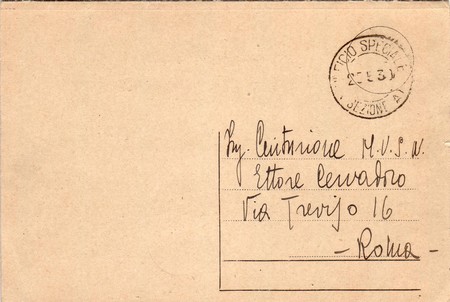 FICIO SPECIA
SEZIONE A
Ing. Centurione M.V.S.N.
Ettore Cervadoro
Via Treviso 16
- Roma -